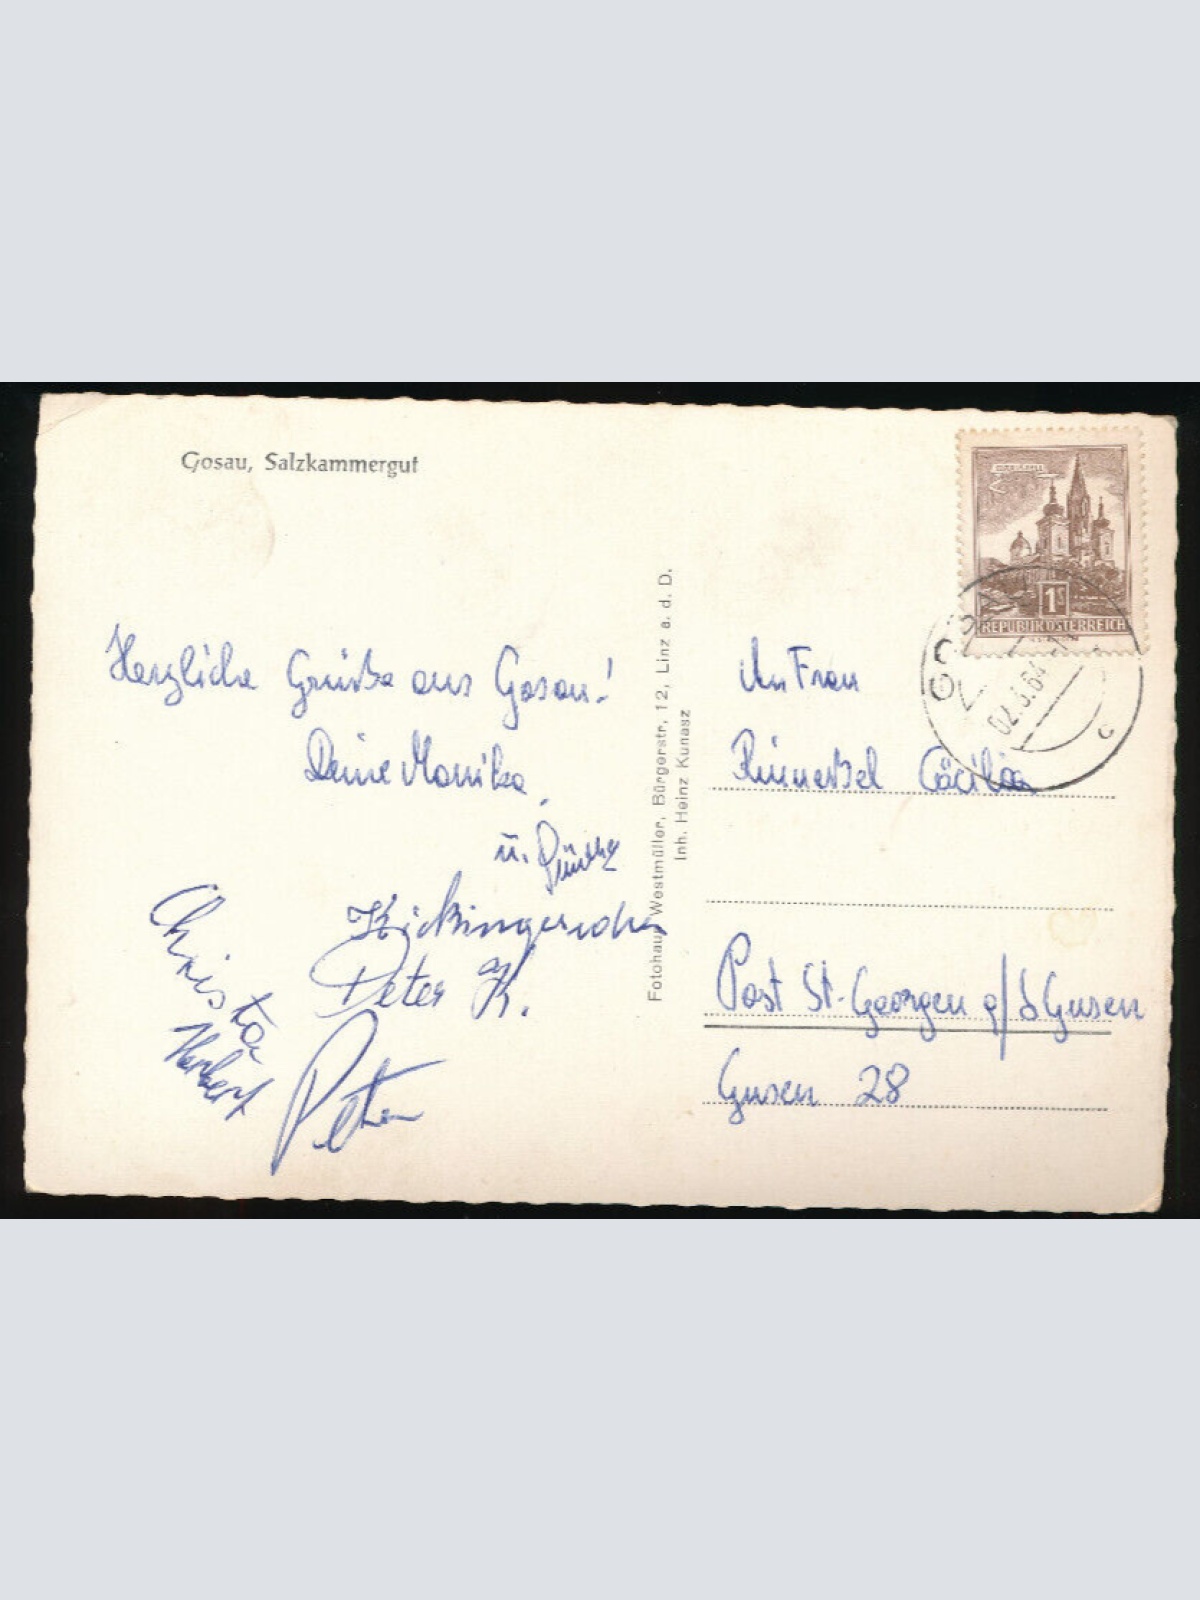 Gosau, Salzkammergut
Herzliche Grüße aus Gosau!
Deine Monika
u.
Peter K.
Christa
Herbert
Peter
Fotohaus Westmüller, Bürgerstr. 12, Linz a. d. D.
Inh. Heinz Kunasz
1S
REPUBLIK ÖSTERREICH
GOSAU
02.6.64
c
An Frau
Cäcilia
Post St. Georgen a/d Gusen
Gusen 28